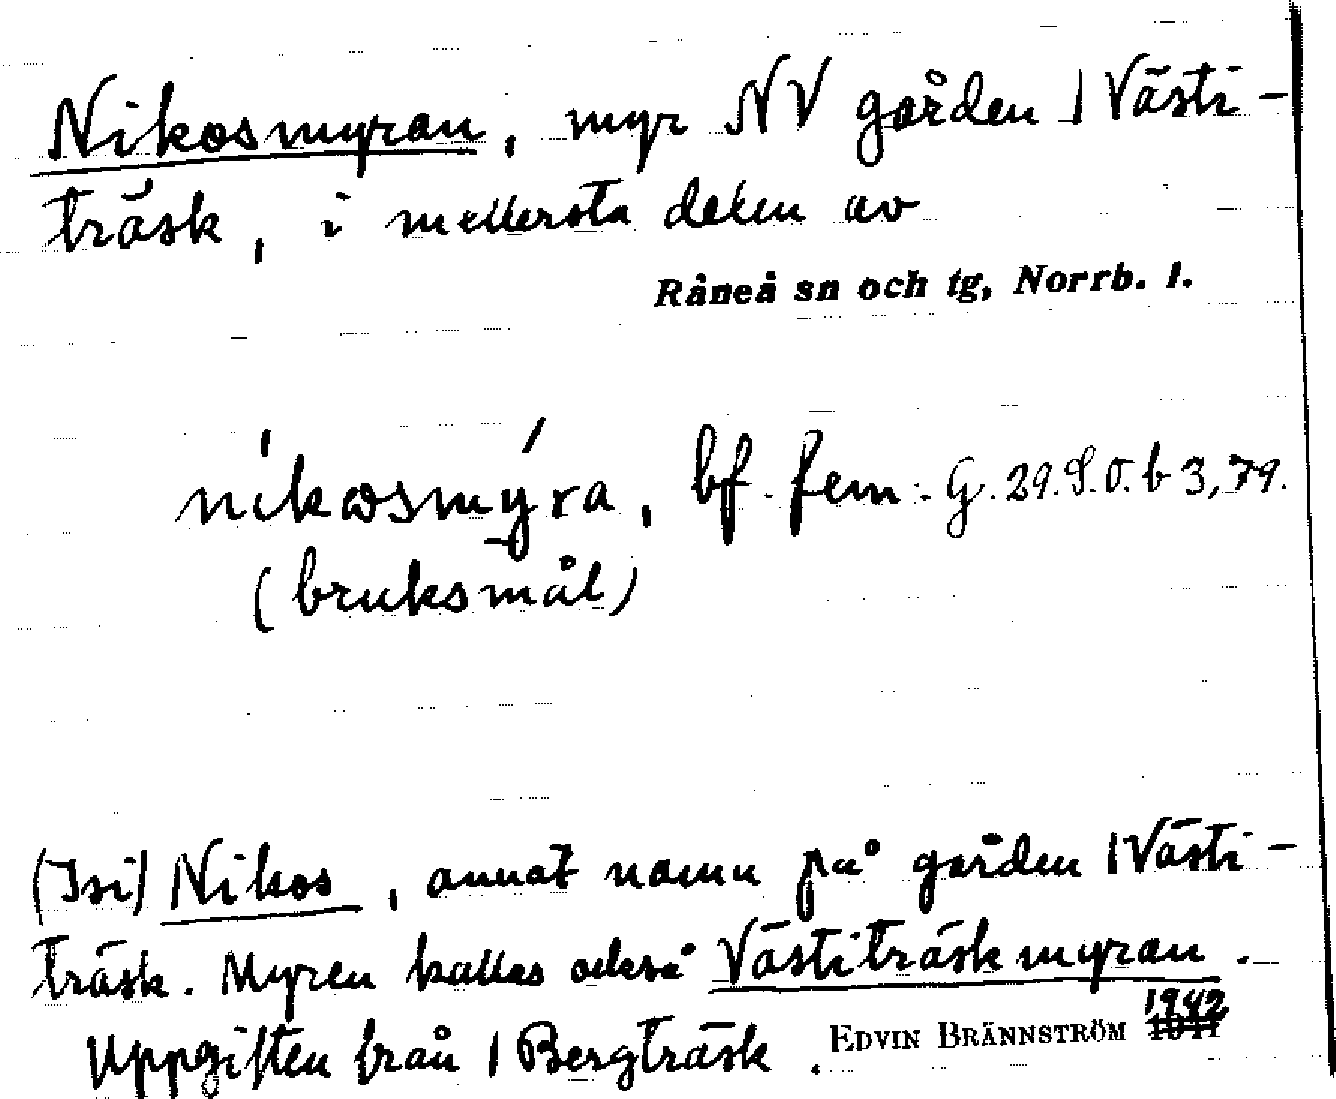 Nikosmyran, myr NV gården 1 Västi-
träsk, i mellersta delen av
Råneå sn och tg, Norrb. l.
nikosmýra, bf. fem. G. 29. S. O. b 3, 79.
(bruksmål)
(Isi) Nikos, annat namn på gården 1 Västi-
träsk. Myren kallas också Västiträskmyran.
Uppgiften från 1 Bergträsk.
EDVIN BRÄNNSTRÖM 1942